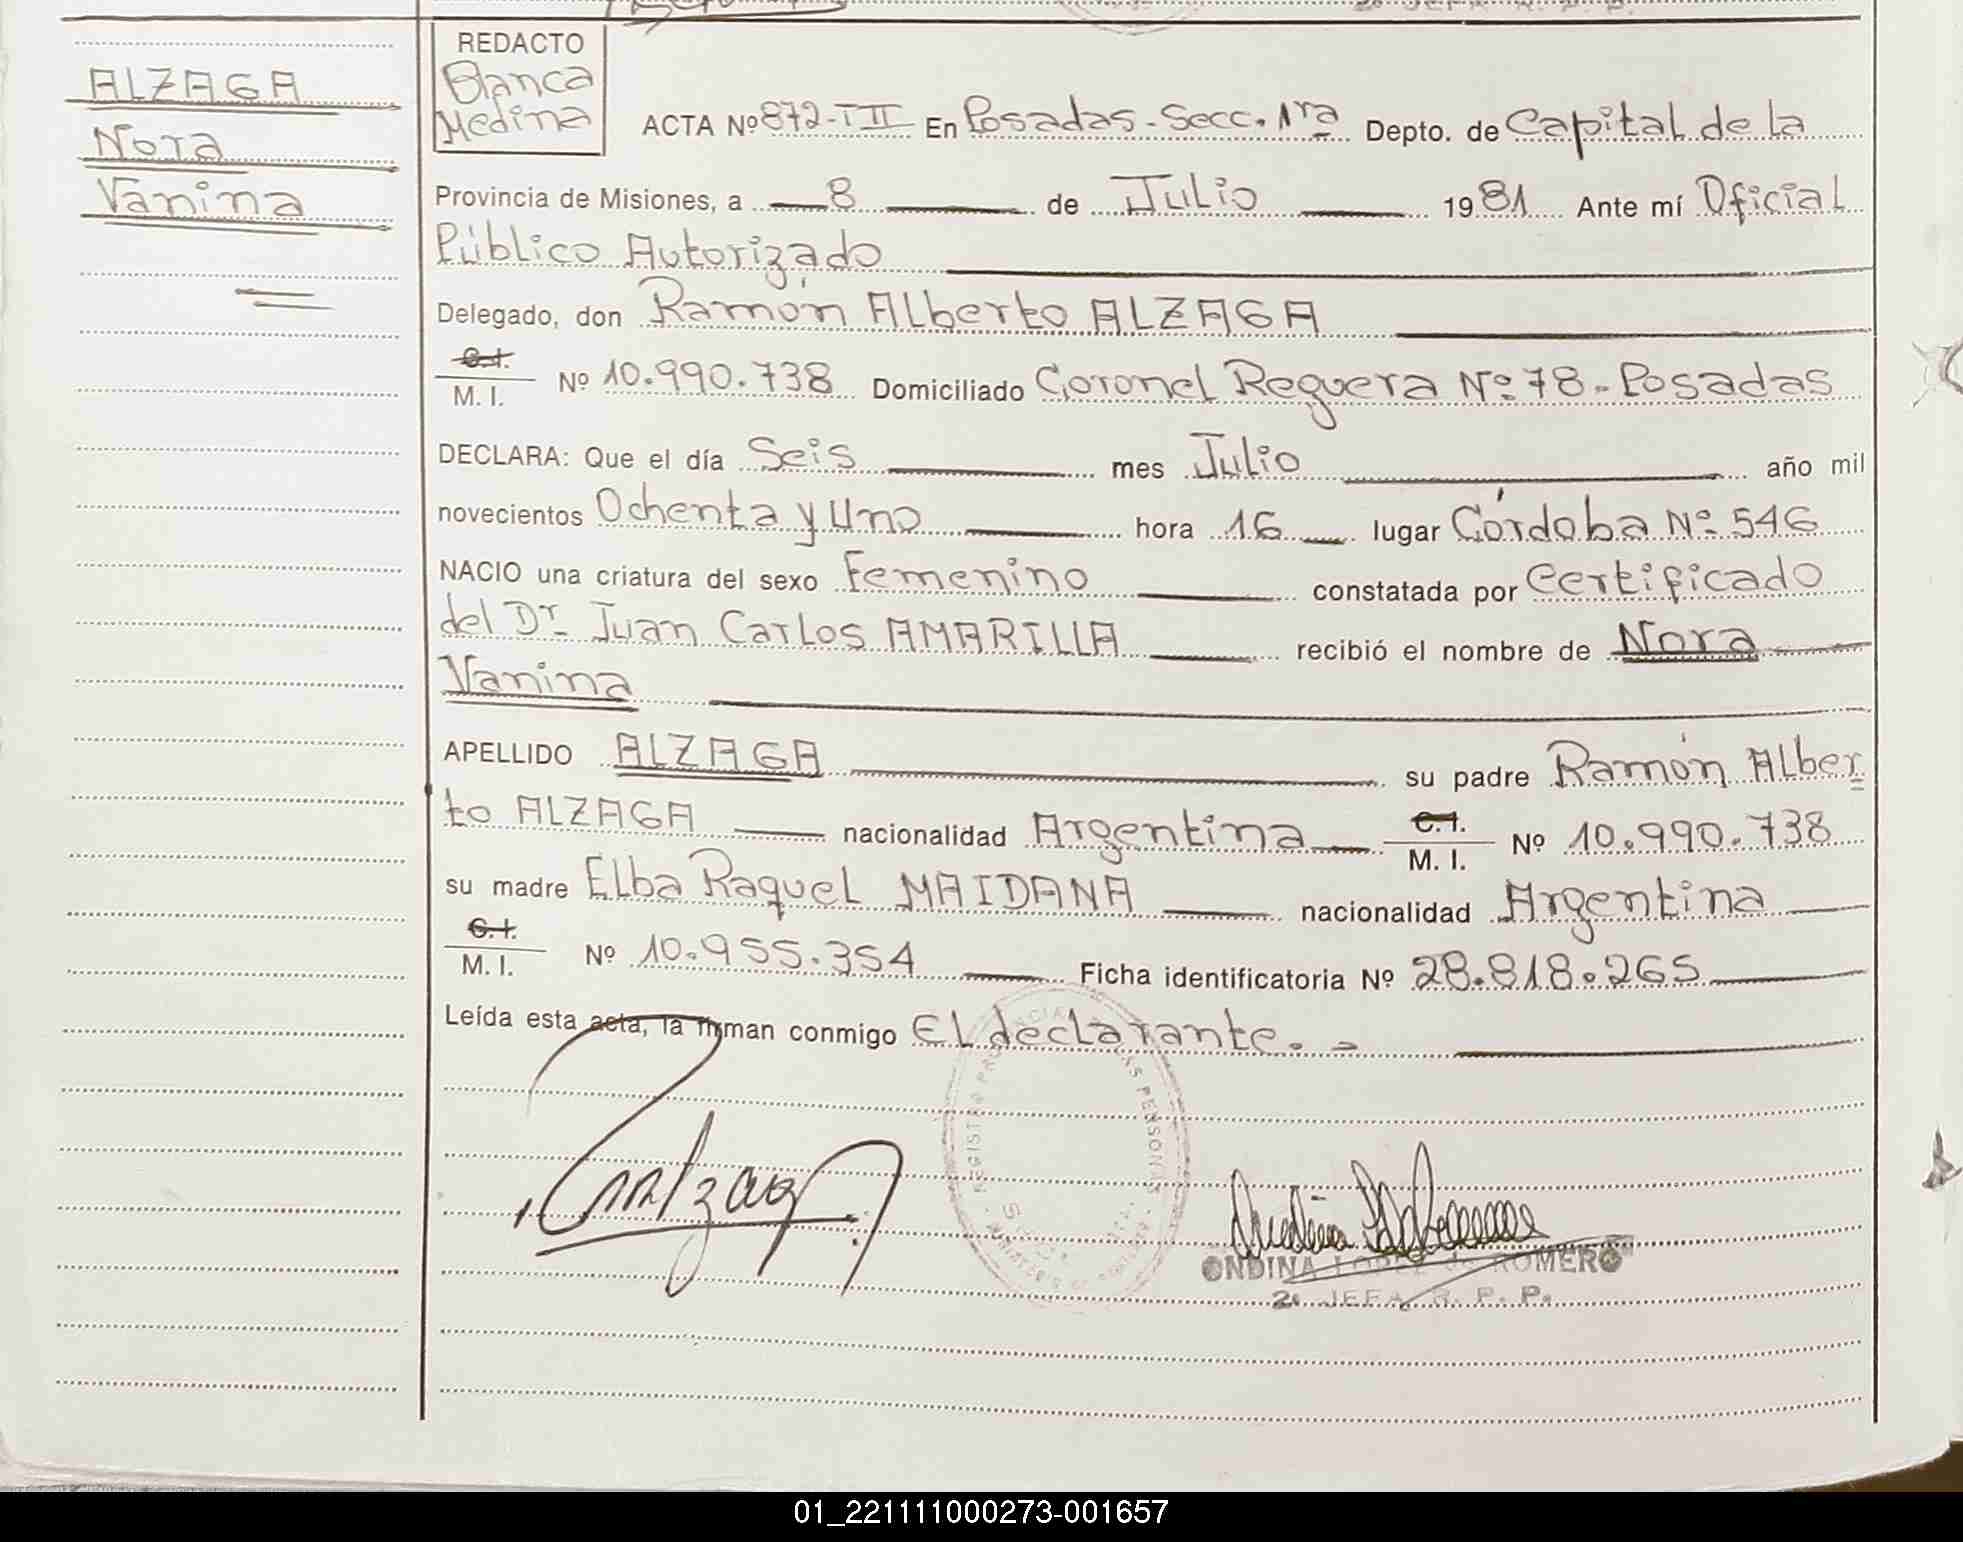 ALZAGA
Nora
Vanina
REDACTO
Blanca
Medina
ACTA Nº 872-III En Posadas-Secc. 1ra Depto. de Capital de la
Provincia de Misiones, a 8 de Julio 1981 Ante mí Oficial
Público Autorizado
Delegado, don Ramón Alberto ALZAGA
C.I.
M. I. Nº 10.990.738 Domiciliado Coronel Reguera Nº 78-Posadas
DECLARA: Que el día Seis mes Julio año mil
novecientos Ochenta y Uno hora 16 lugar Córdoba Nº 546
NACIO una criatura del sexo Femenino constatada por Certificado
del Dr. Juan Carlos AMARILLA recibió el nombre de Nora
Vanina
APELLIDO ALZAGA su padre Ramón Alber
to ALZAGA nacionalidad Argentina C.I. M. I. Nº 10.990.738
su madre Elba Raquel MAIDANA nacionalidad Argentina
C.I.
M. I. Nº 10.955.354 Ficha identificatoria Nº 28.818.265
Leída esta acta, la firman conmigo El declarante.-
ONDINA LOPEZ de ROMERO
2. JEFA R. P. P.
01_221111000273-001657